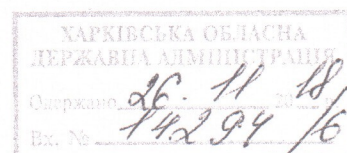 ХАРКІВСЬКА ОБЛАСНА
ДЕРЖАВНА АДМІНІСТРАЦІЯ
Одержано 26. 11 2018
Вх. № 14294/6